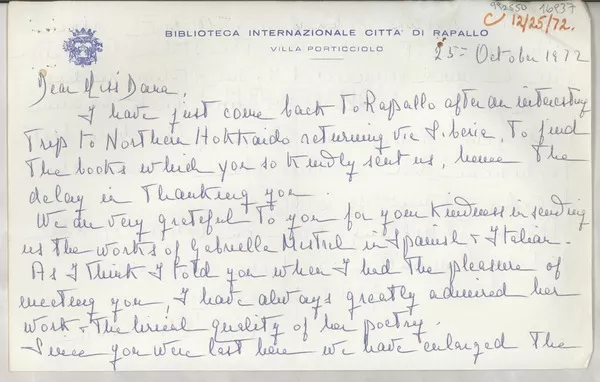 992550 16937
C 12/25/72.
BIBLIOTECA INTERNAZIONALE CITTA' DI RAPALLO
VILLA PORTICCIOLO
25 October 1972
Dear Miss Dana,
I have just come back to Rapallo after an interesting
trip to Northern Hokkaido returning via Siberia, to find
the books which you so kindly sent us, hence the
delay in thanking you.
We are very grateful to you for your kindness in sending
us the works of Gabriella Mistral in Spanish & Italian.
As I think I told you when I had the pleasure of
meeting you, I have always greatly admired her
work & the lirical quality of her poetry.
Since you were last here we have enlarged the